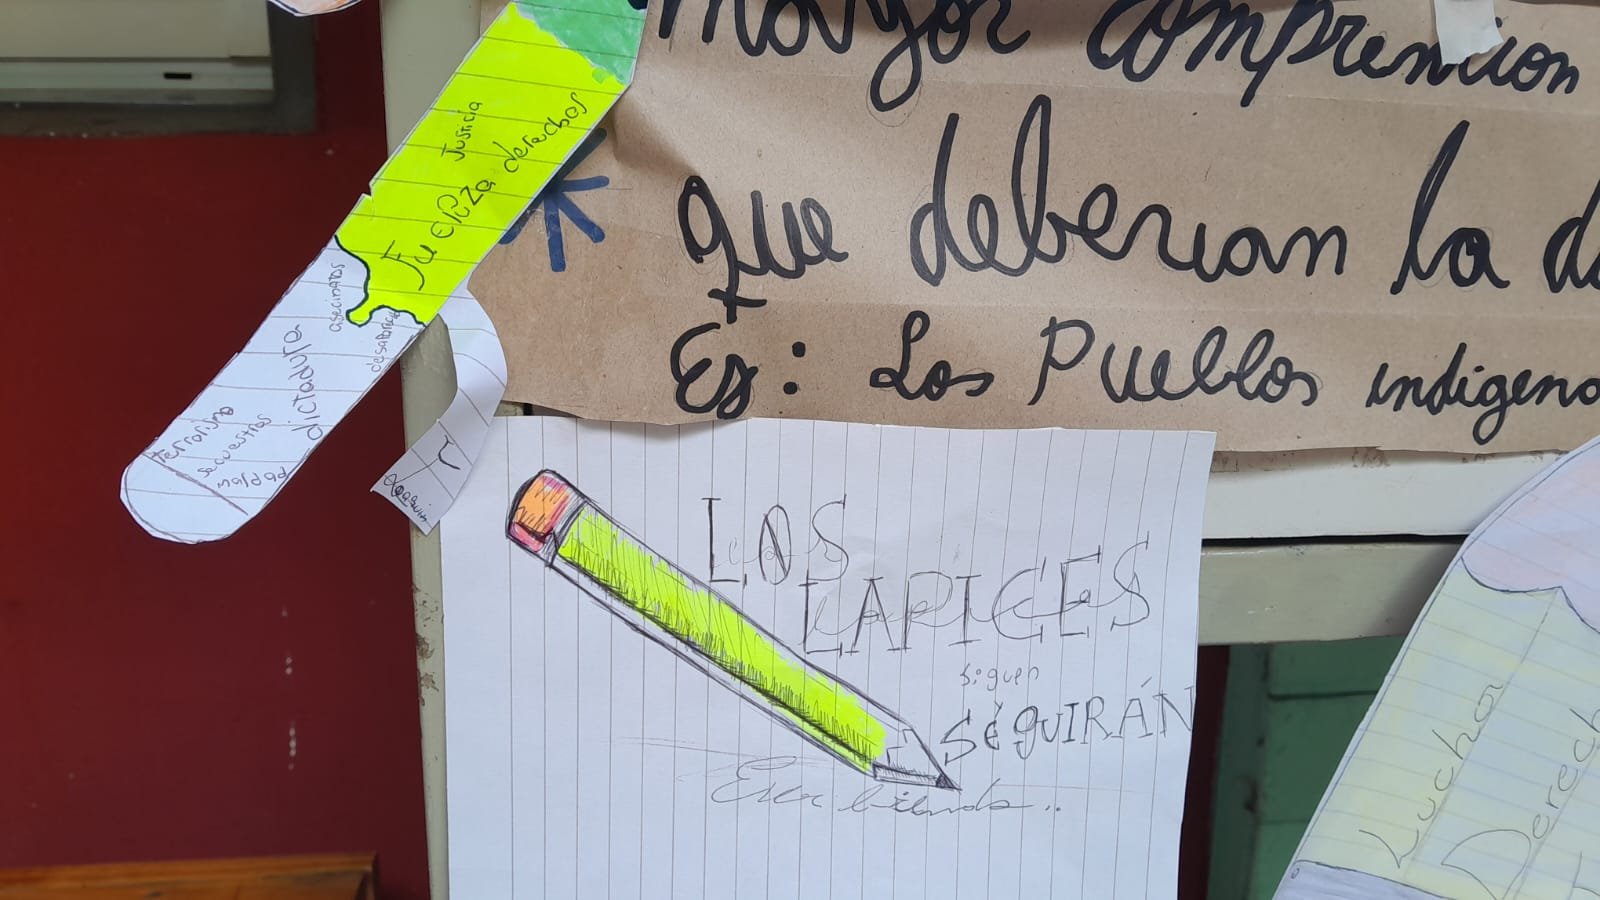 Mayor comprención
que deberian la d
Ej: Los Pueblos indigeno
Justicia
Fuerza derechos
asecinatos
desapari
dictadura
terrorismo
secuestros
Joaquin
LOS
LAPICES
siguen
SéguIRÁN
Escribiendo..
Luchar
Derech